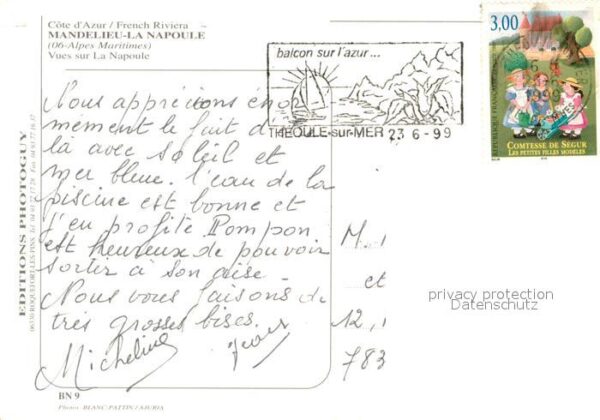 Côte d'Azur / French Riviera
MANDELIEU-LA NAPOULE
(06-Alpes Maritimes)
Vues sur La Napoule
balcon sur l'azur...
THEOULE-sur-MER 23 6-99
3,00
1999
RÉPUBLIQUE FRANÇAISE
COMTESSE DE SÉGUR
LES PETITES FILLES MODÈLES
Nous apprécions énor
mément le fait d'
là avec soleil et
mer bleue. l'eau de la
piscine est bonne et
j'en profite Pompon
est heureux de pouvoir
sortir à son aise.
Nous vous faisons de
très grosses bises.
Micheline Jean
M.
et
12,
783
privacy protection
Datenschutz
EDITIONS PHOTOGUY
06330 ROQUEFORT-LES-PINS Tel 04 93 77 17 28 Fax 04 93 77 16 37
BN 9
Photos BLANC/PATTIN/AJURIA